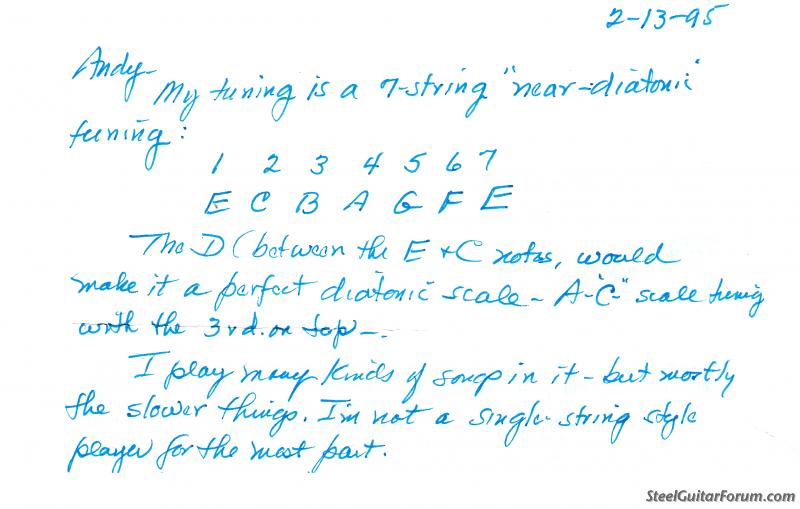 2-13-95
Andy-
My tuning is a 7-string "near-diatonic"
tuning:
1 2 3 4 5 6 7
E C B A G F E
The D (between the E + C notes, would
make it a perfect diatonic scale - A "C" scale tuning
with the 3rd. on top -.
I play many kinds of songs in it - but mostly
the slower things. I'm not a single-string style
player for the most part.
SteelGuitarForum.com